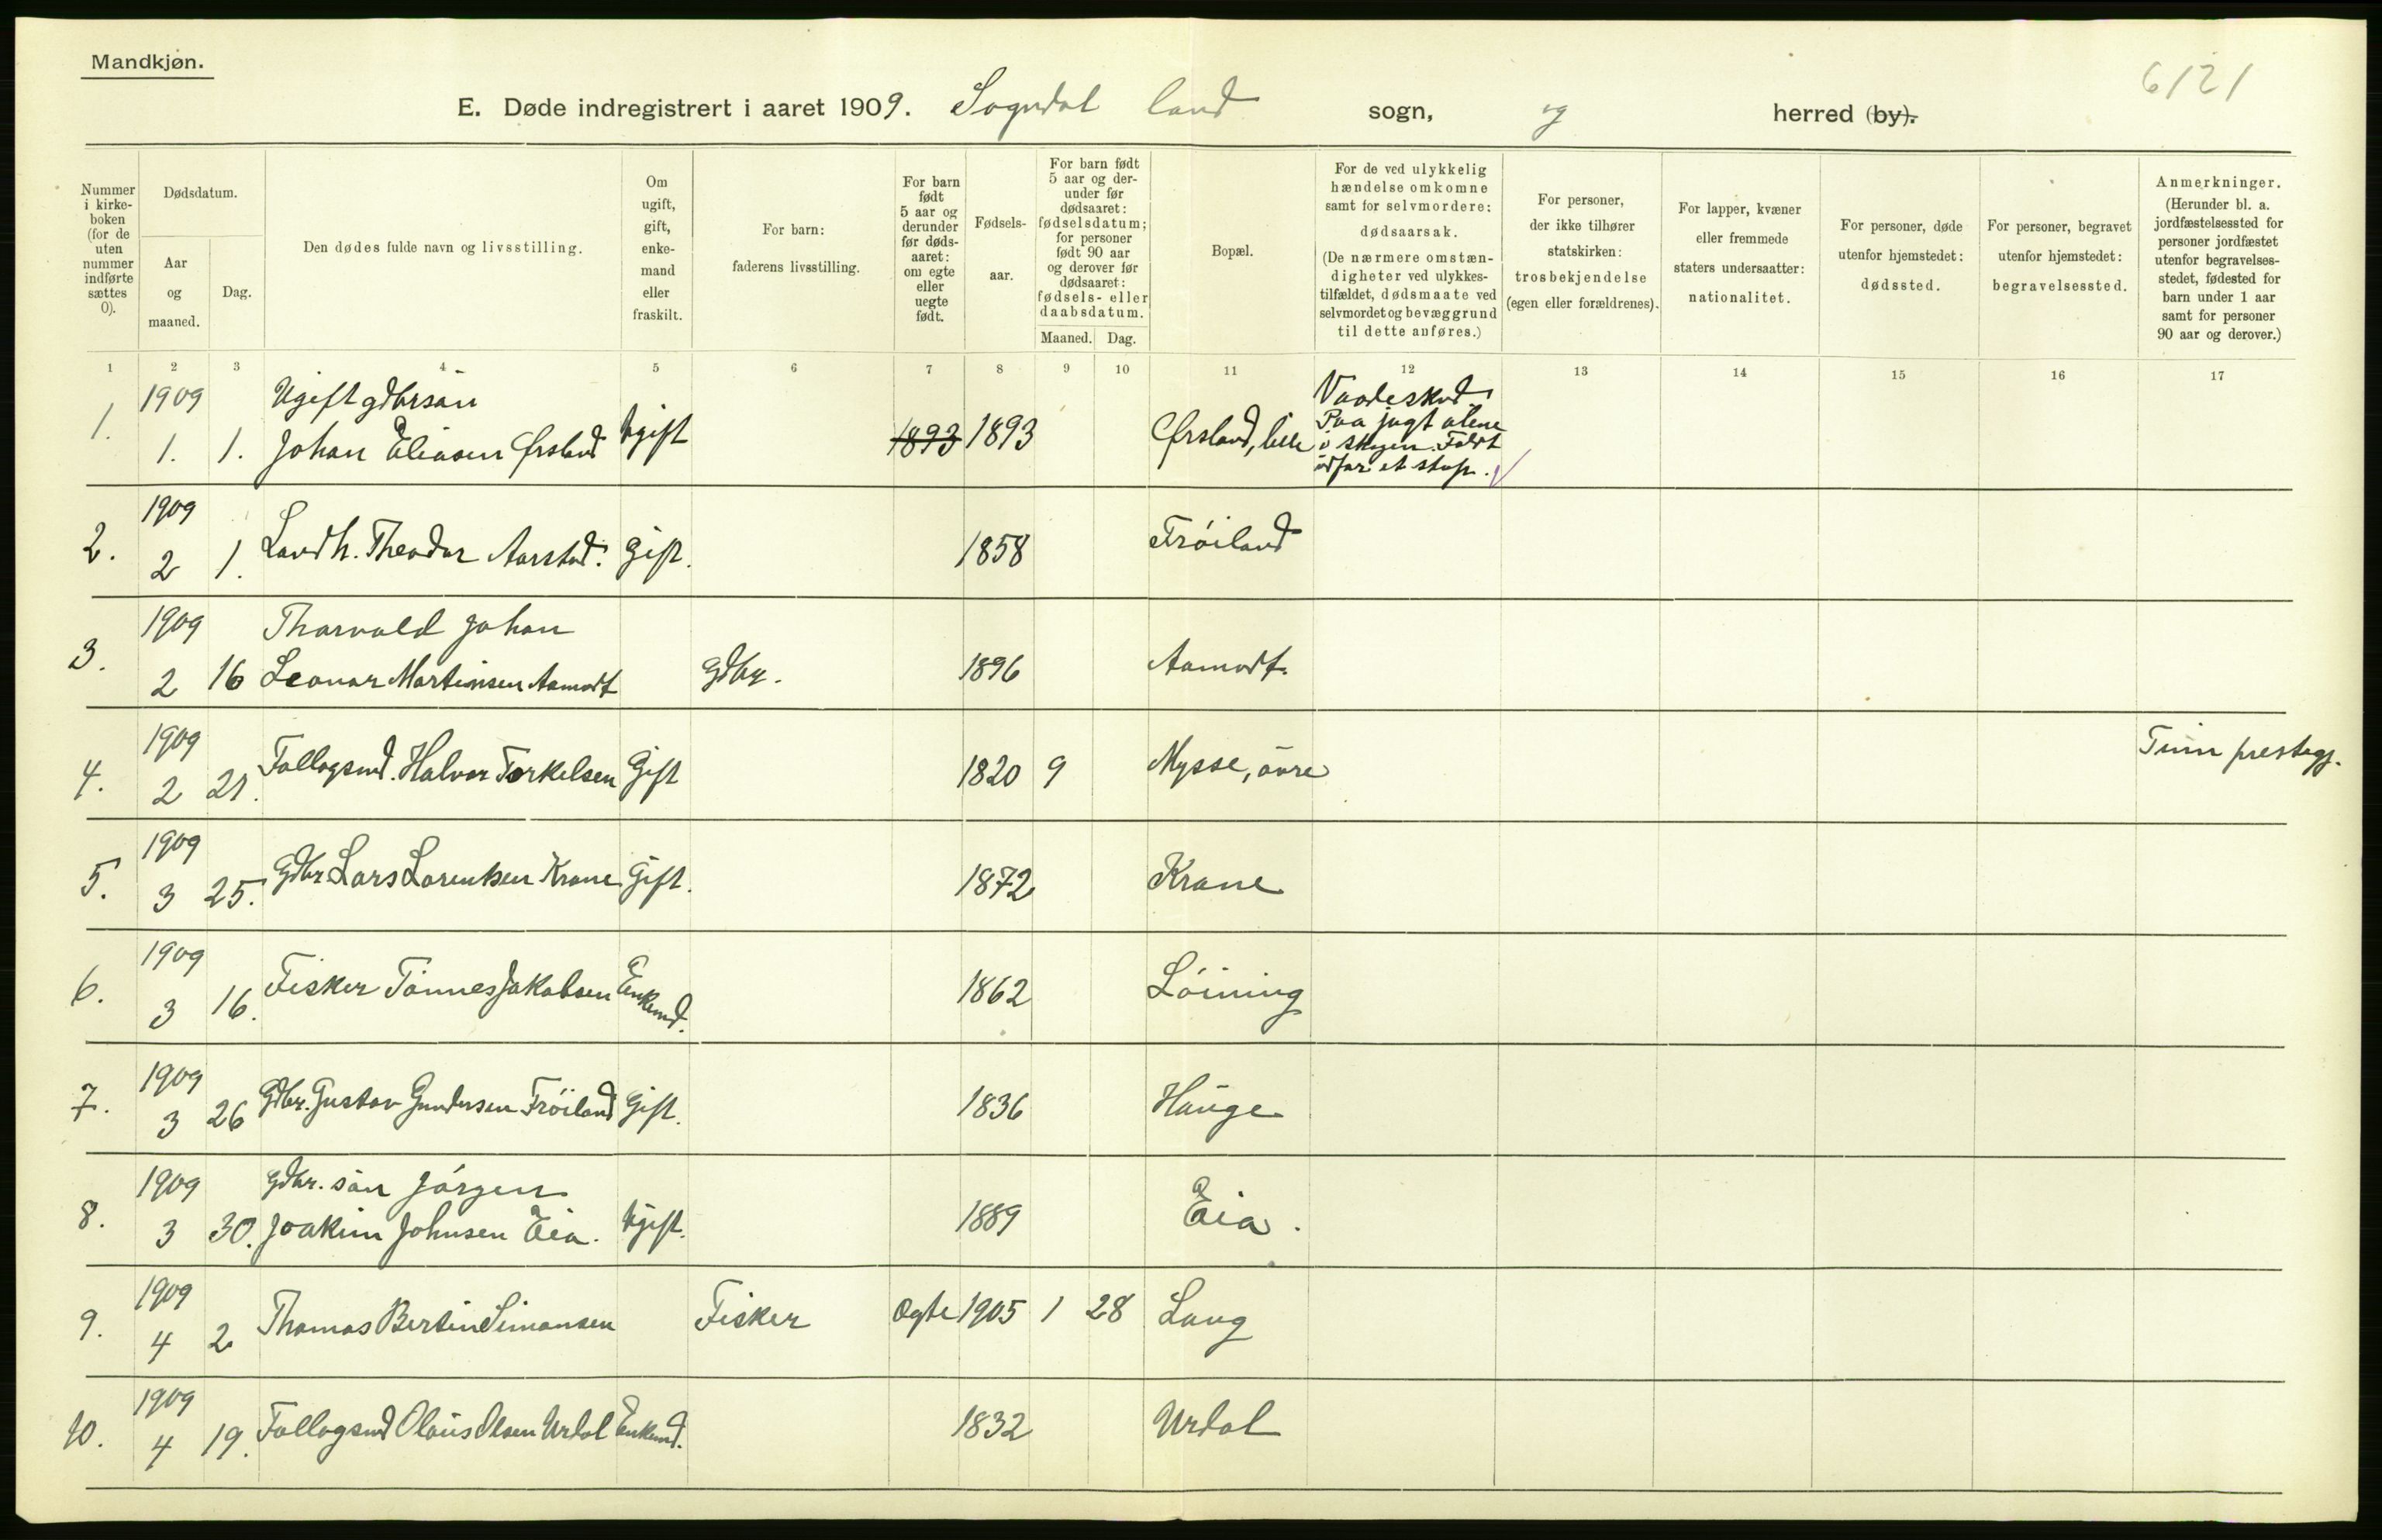 Mandkjøn.
6121
E. Døde indregistrert i aaret 1909. Sogndal land sogn, og herred (by).
Nummer i kirke-boken (for de uten nummer indførte sættes 0).
Dødsdatum.
Aar og maaned.
Dag.
Den dødes fulde navn og livsstilling.
Om ugift, gift, enke-mand eller fraskilt.
For barn: faderens livsstilling.
For barn født 5 aar og derunder før døds-aaret: om egte eller uegte født.
Fødsels-aar.
For barn født 5 aar og der-under før dødsaaret: fødselsdatum; for personer født 90 aar og derover før dødsaaret: fødsels- eller daabsdatum.
Maaned. Dag.
Bopæl.
For de ved ulykkelig hændelse omkomne samt for selvmordere: dødsaarsak. (De nærmere omstæn-digheter ved ulykkes-tilfældet, dødsmaate ved selvmordet og bevæggrund til dette anføres.)
For personer, der ikke tilhører statskirken: trosbekjendelse (egen eller forældrenes).
For lapper, kvæner eller fremmede staters undersaatter: nationalitet.
For personer, døde utenfor hjemstedet: dødssted.
For personer, begravet utenfor hjemstedet: begravelsessted.
Anmerkninger. (Herunder bl. a. jordfæstelsessted for personer jordfæstet utenfor begravelses-stedet, fødested for barn under 1 aar samt for personer 90 aar og derover.)
1 2 3 4 5 6 7 8 9 10 11 12 13 14 15 16 17
1. 1909 1. 1. Ugift gdbrsøn Johan Eliasen Ørsland Ugift 1893 1893 Ørsland, lille Vaadeskud Paa jagt alene i skogen. Faldt udfor et stup.
2. 1909 2 1. Landh. Theodor Aarstad. Gift. 1858 Frøiland
3. 1909 2 16 Thorvald Johan Leonar Martinsen Aamodt Gdbr. 1896 Aamodt.
4. 1909 2 21. Follogsmd. Halvor Torkelsen Gift 1820 9 Mysse, øvre Tinn prestegj.
5. 1909 3 25. Gdbr Lars Larentsen Krane Gift. 1872 Krane
6. 1909 3 16. Fisker Tønnes Jakobsen Enkemd. 1862 Løining
7. 1909 3 26 Gdbr. Gustav Gundersen Frøiland Gift. 1836 Hauge
8. 1909 3 30. Gdbr. søn Jørgen Joakim Johnsen Eia. Ugift. 1889 Eia.
9. 1909 4 2 Thomas Bertin Simonsen Fisker Ægte 1905 1 28 Laug
10. 1909 4 19. Follogsmd Olaus Olsen Urdal Enkemd. 1832 Urdal